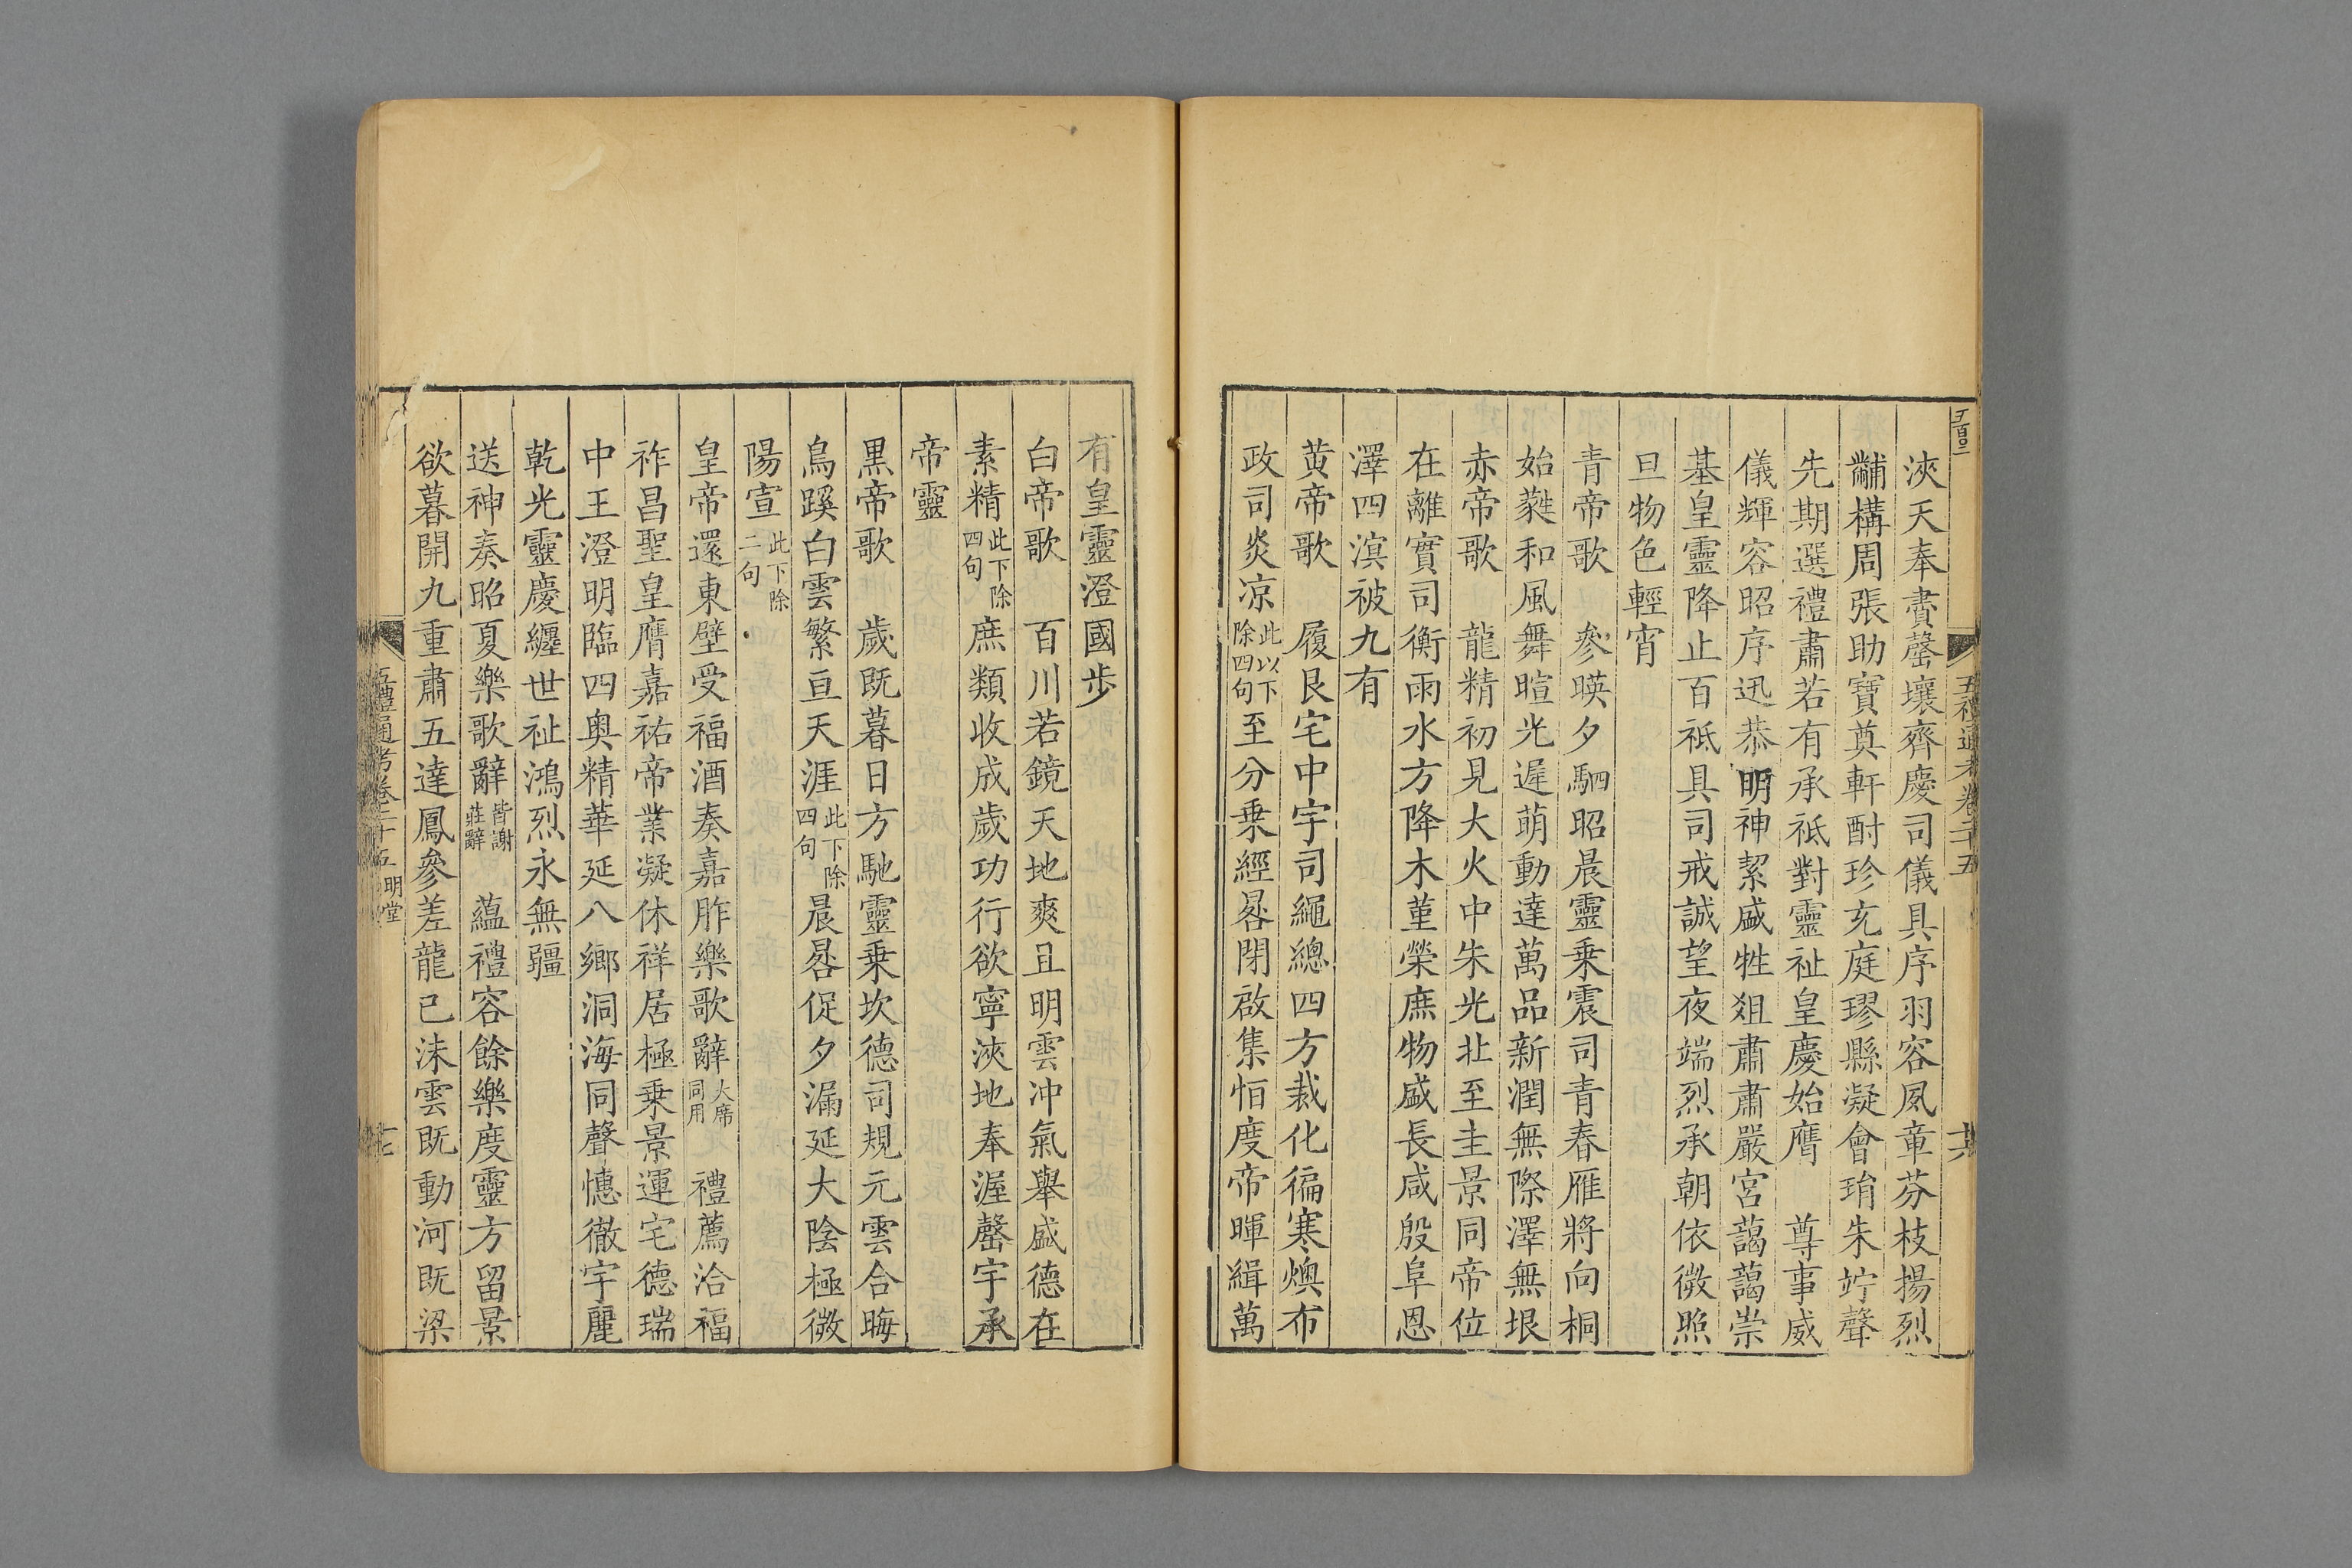 浹天奉賮罄壤齊慶司儀具序羽容夙章芬枝揚烈
黼構周張助寶奠軒酎珍充庭璆縣凝會琄朱竚聲
先期選禮肅若有承祗對靈祉皇慶始膺　尊事威
儀輝容昭序迅恭明神絜盛牲俎肅肅嚴宮藹藹崇
基皇靈降止百祗具司戒誠望夜端烈承朝依微照
旦物色輕宵
青帝歌　參暎夕駟昭晨靈乗震司青春雁將向桐
始蕤和風舞暄光遲萌動達萬品新潤無際澤無垠
赤帝歌　龍精初見大火中朱光北至圭景同帝位
在離實司衡雨水方降木堇榮庶物盛長咸殷阜恩
澤四溟被九有
黄帝歌　履艮宅中宇司繩總四方裁化徧寒燠布
政司炎凉此以下除四句至分乗經晷閉啟集恒度帝暉緝萬
有皇靈澄國步
白帝歌　百川若鏡天地爽且明雲冲氣舉盛德在
素精此下除四句庶類收成歲功行欲寧浹地奉渥罄宇承
帝靈
黒帝歌　歲既暮日方馳靈乗坎德司規元雲合晦
鳥蹊白雲繁亘天涯此下除四句晨晷促夕漏延大陰極微
陽宣此下除二句
皇帝還東壁受福酒奏嘉胙樂歌辭大席同用　禮薦洽福
祚昌聖皇膺嘉祐帝業凝休祥居極乗景運宅德瑞
中王澄明臨四奥精華延八鄉洞海同聲憓徹宇麗
乾光靈慶纏世祉鴻烈永無疆
送神奏昭夏樂歌辭皆謝莊辭　蘊禮容餘樂度靈方留景
欲暮開九重肅五達鳳參差龍已沬雲既動河既梁
五禮通考卷二十五　明堂